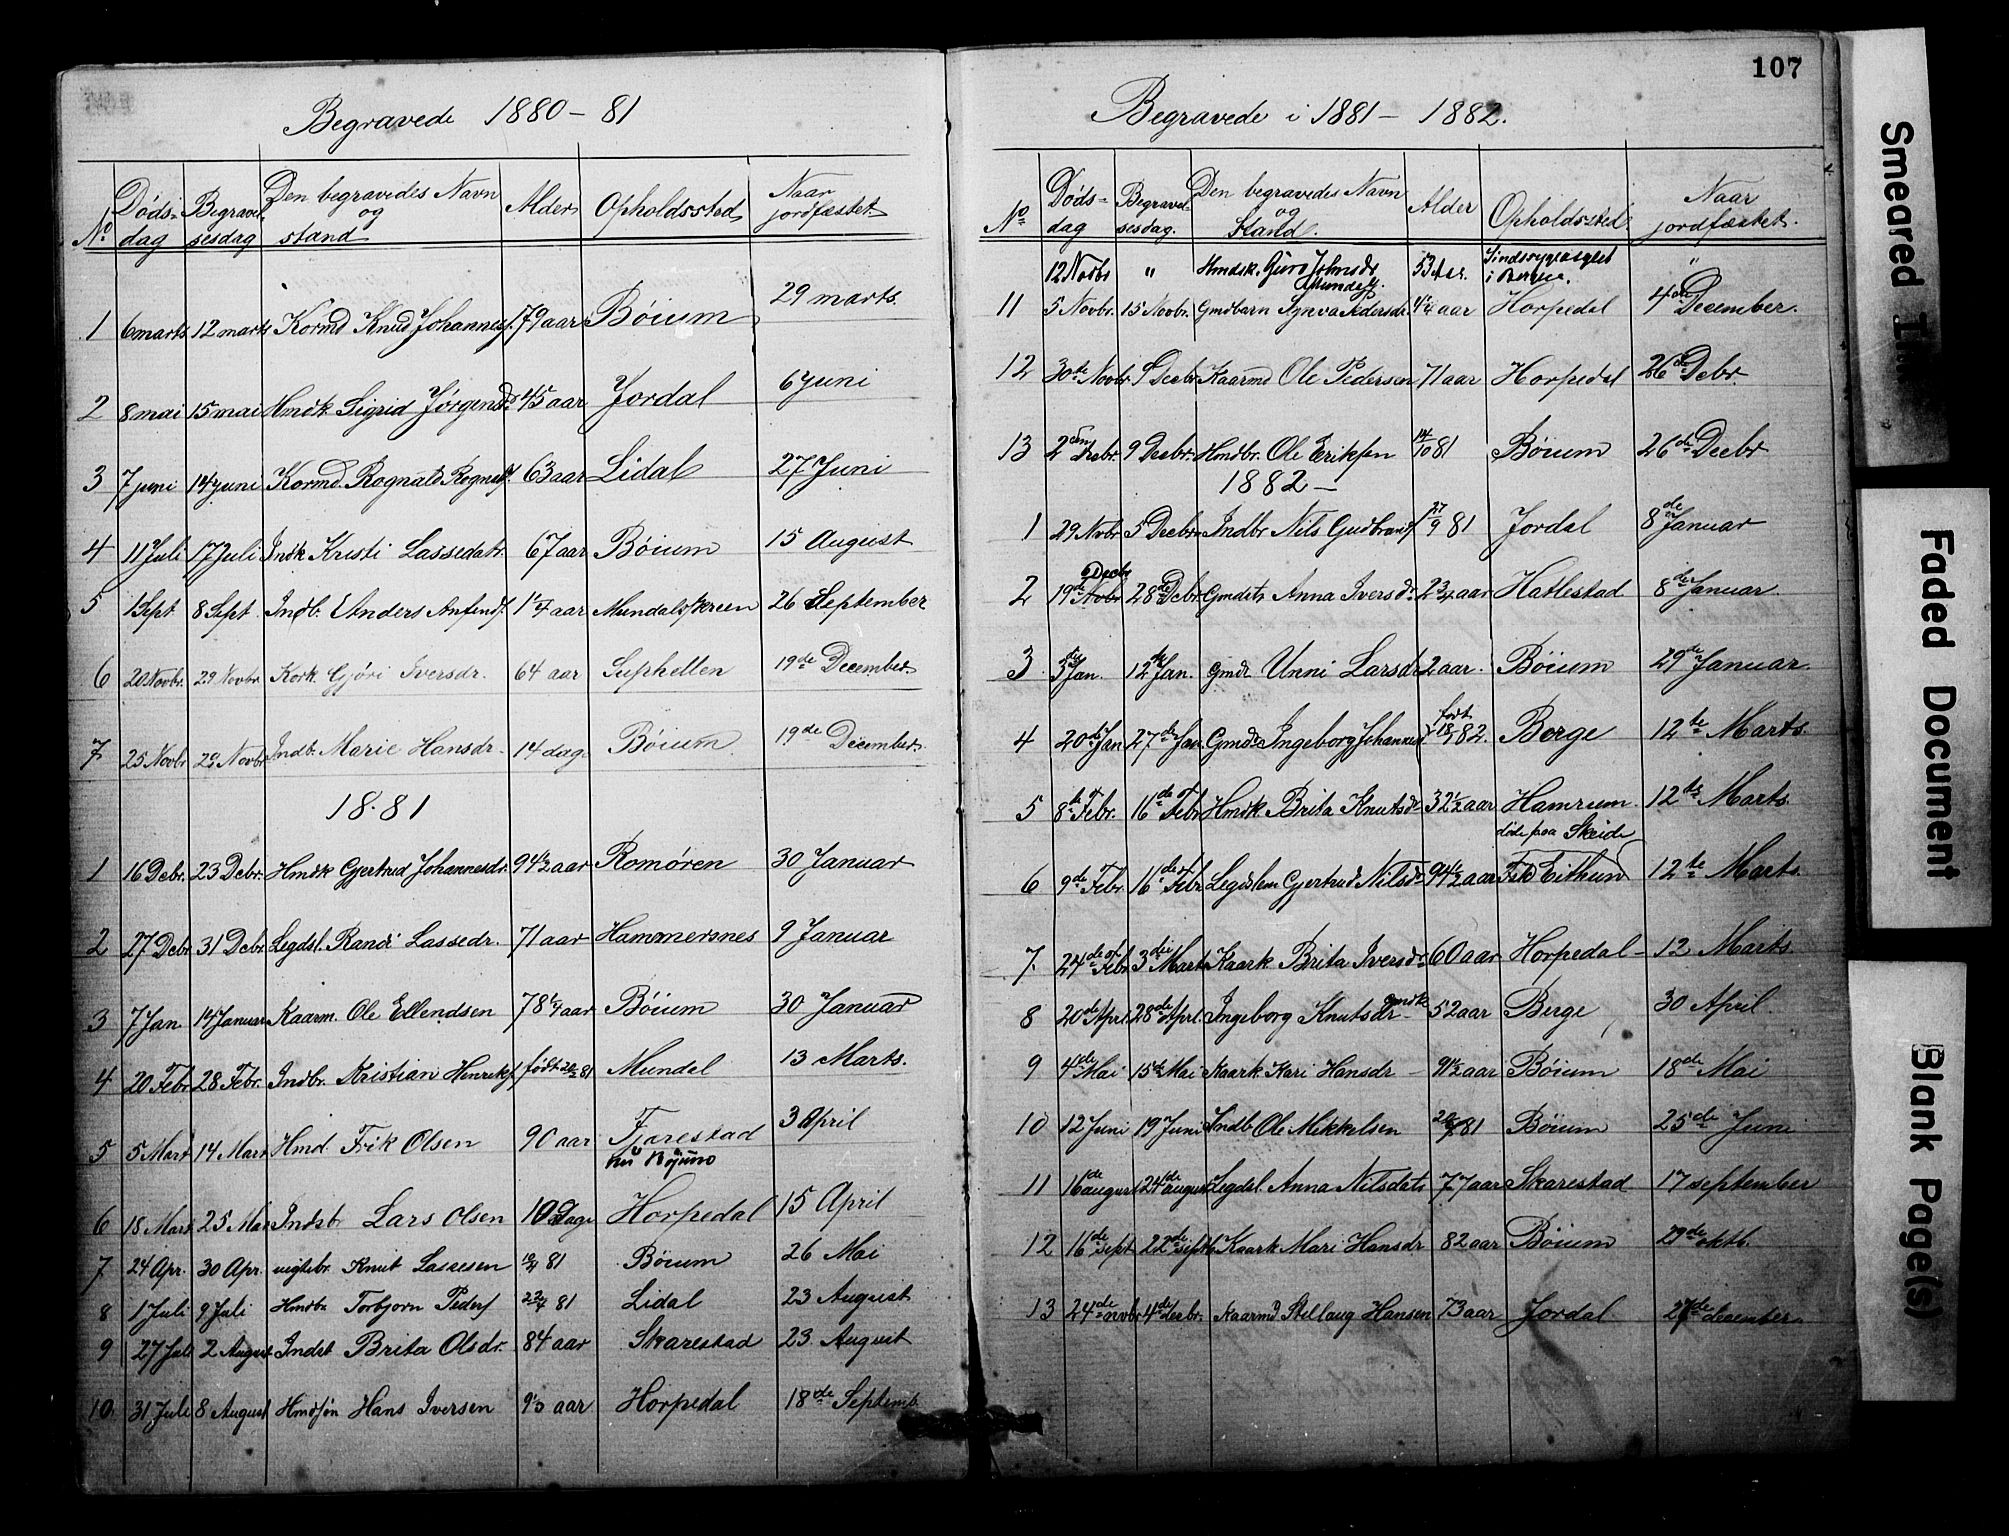 107
Begravede 1880 - 81
No Dødsdag Begravelsesdag Den begravedes Navn og stand Alder Opholdssted Naar jordfæstet.
1 6 marts 12 marts Kormd Knud Johannes. 79 aar Böium 29 marts.
2 8 mai 15 mai Hmdk Sigrid Jørgensd. 45 aar Jordal 6 Juni
3 7 juni 14 juni Kormd. Rognald Rognalds. 63 aar Lidal 27 Juni
4 11 Juli 17 Juli Indk Kristi Lassedatr. 67 aar Böium 15 August
5 1 Sept 8 Sept. Indb. Anders 1 1/4 aar Mundalsskreen 26 September
6 20 Novbr. 29 Novbr. Kork. Gjöri Iversdr. 64 aar Suphellen 19de December
7 25 Novbr 29 Novbr Indb. Marie Hansdr. 14 dag. Böium 19de December.
1881
1 16 Debr. 23 Debr. Hmdk Gjertrud Johannesdr. 94 1/2 aar Romören 30 Januar
2 27 Debr 31 Debr Legdsl. Randi Lassedr. 71 aar Hammersnes 9 Januar
3 7 Jan. 14 Januar Kaarm. Ole Ellendsen 78 1/4 aar Böium 30 Januar
4 20 Febr. 28 Febr. Indbr. Kristian Henriks. født 81 Mundal 13 Marts.
5 5 Mart 14 Mart Hmd. Erik Olsen 90 aar Fjærestad 3 April
6 18 Mart 25 Mar Indsb. Lars Olsen 10 Dage Horpedal 15 April
7 24 Apr. 30 Apr. Knut Lassesen 81 Böium 26 Mai
8 1 Juli 9 Juli Hmdbr Torbjorn Peders 22/4 81 Lidal 23 August
9 27 Juli 2 August Indst Brita Olsdr. 84 aar Skarestad 23 August
10. 31 Juli 8 August Hmdsøn Hans Iversen 9 1/3 aar Horpedal 18de Septemb.
Begravede i 1881 - 1882.
No Dødsdag Begravelsesdag. Den begravedes Navn og Stand. Alder Opholdssted Naar jordfæstet.
12 Novbr " Hmdsk. Guro Johnsdr. Mundal. 53 Aar. Sindssygeasylet i Bergen. "
11 5 Novbr. 15 Novbr. Gmdbarn Synva Pedersdr. 4 1/4 aar Horpedal 4de December.
12 30te Novbr 5 Decbr Kaarmd Ole Pedersen 71 aar Horpedal 26de Debr.
13 2den Decbr. 9 Decbr. Hmdbr. Ole Eriksen 14/10 81 Böium 26de Decbr
1882 -
1 29 Novbr 5 Decbr Indbr Nils Gudbrands 27/9 81 Jordal 8de Januar
2 19de Novbr Decbr 28de Debr Gmdsts Anna Iversdr 2 3/4 aar Hatlestad 8de Januar.
3 3die Jan. 12te Jan. Gmdr Unni Larsdr 2 aar. Böium 29de Januar.
4 20de Jan 27de Jan Gmdr Ingeborg Johannesd født 18/1 82. Berge 12te Marts.
5 8de Febr. 16de Febr Hmdk Brita Knutsdr 32 1/2 aar Hamrum 12te Marts
døde paa Skeide
6 9de Febr. 16de Febr Legdslem Gjertrud Nilsdr 94 1/2 aar Eithun 12te Marts.
7. 24de Febr. 3die Marts Kaark Brita Iversdr 60 aar Horpedal - 12 Marts.
8 20de Aprl. 28de Aprl. Ingeborg Knutsdr Gmdk 52 aar Berge 30 April.
9 4de Mai 15de Mai Kaark. Kari Hansdr - 91 1/2 aar Böium 18de Mai
10 12 Juni 19 Juni Indb. Ole Mikkelsen 81 Böium 25de Juni
11 16de august 24de august Legdsl. Anna Nilsdatr 77 aar Skarestad 17 september
12 16de sept 22de septb Kaark Mari Hansdr 82 aar Böium 29de oktb.
13 24de novbr 4de decbr. Kaarmd Stellaug Hansen 73 aar Jordal 27de december.
Smeared I
Faded Document
Blank Page(s)